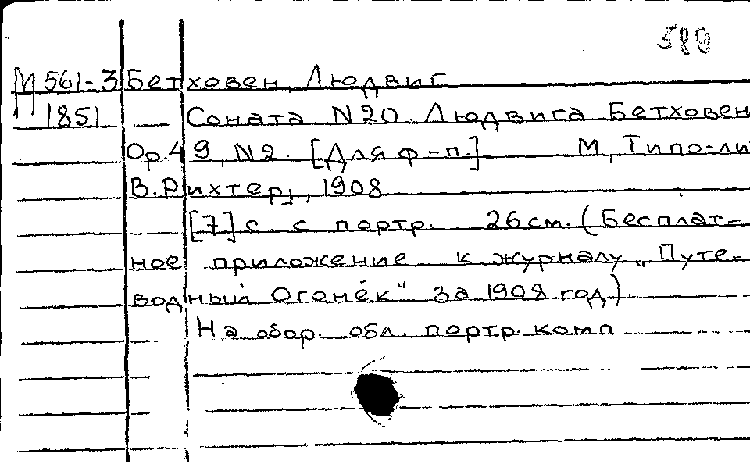 589
М 561-3 Бетховен, Людвиг
1851 — Соната N20 Людвига Бетховен
Op.49, N2. [Для ф-п.] М, Типо-ли
В. Рихтер, 1908
[7] с с портр. 26см. (Бесплат-
ное приложение к журналу „Путе-
водный Огонёк" за 1908 год)
На обор. обл. портр. комп